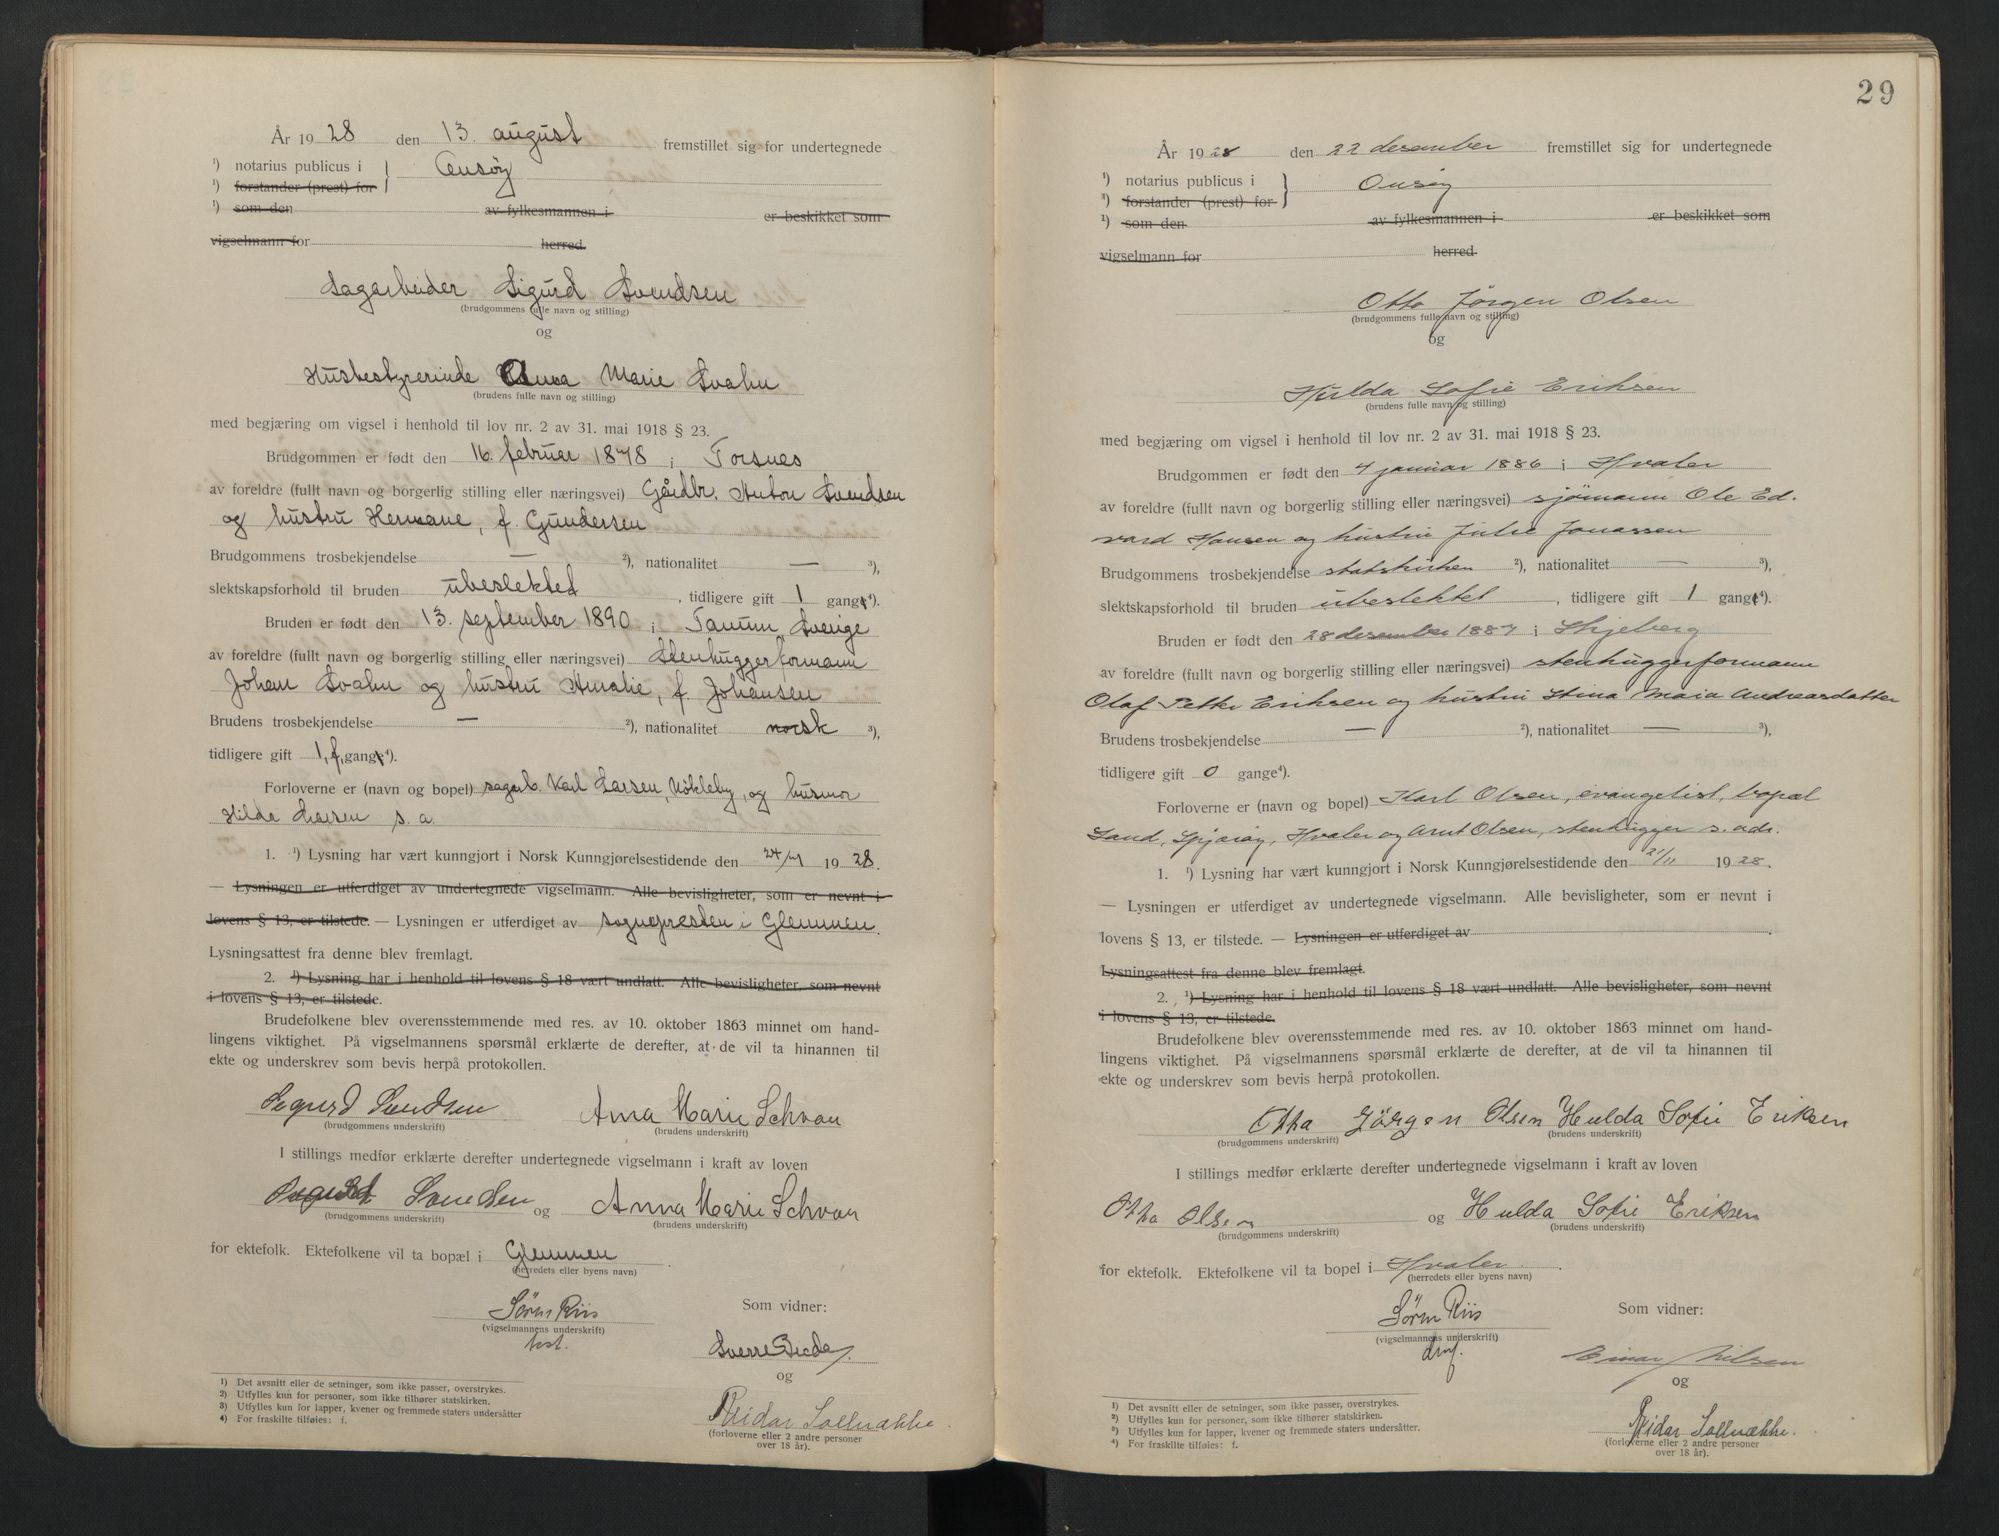 År 1928 den 13. august fremstillet sig for undertegnede
¹) notarius publicus i } Onsøy
¹) forstander (prest) for
¹) som den av fylkesmannen i er beskikket som
vigselmann for herred
Sagarbeider Sigurd Svendsen
(brudgommens fulle navn og stilling)
og
Husbestyrerinde Anna Marie Svahn
(brudens fulle navn og stilling)
med begjæring om vigsel i henhold til lov nr. 2 av 31. mai 1918 § 23.
Brudgommen er født den 16. februar 1878 i Torsnes
av foreldre (fullt navn og borgerlig stilling eller næringsvei) Gårdbr. Anton Svendsen
og hustru Hermane, f. Gundersen
Brudgommens trosbekjendelse — ²), nationalitet — ³),
slektskapsforhold til bruden ubeslektet, tidligere gift 1 gang⁴).
Bruden er født den 13. september 1890 i Tanum, Sverige
av foreldre (fullt navn og borgerlig stilling eller næringsvei) Stenhuggerformann
Johan Svahn og hustru Amalie, f. Johansen
Brudens trosbekjendelse — ²), nationalitet norsk ³),
tidligere gift 1, f, gang⁴).
Forloverne er (navn og bopel) sagarb. Karl Larsen, Nökleby, og husmor
Hilda Larsen s. a.
1. ¹) Lysning har vært kunngjort i Norsk Kunngjørelsestidende den 24/7 1928.
— Lysningen er utferdiget av undertegnede vigselmann. Alle bevisligheter, som er nevnt i
lovens § 13, er tilstede. — Lysningen er utferdiget av sognepresten i Glemmen.
Lysningsattest fra denne blev fremlagt.
2. ¹) Lysning har i henhold til lovens § 18 vært undlatt. Alle bevisligheter, som nevnt
i lovens § 13, er tilstede.
Brudefolkene blev overensstemmende med res. av 10. oktober 1863 minnet om hand-
lingens viktighet. På vigselmannens spørsmål erklærte de derefter, at de vil ta hinannen til
ekte og underskrev som bevis herpå protokollen.
Sigurd Svendsen Anna Marie Schvan
(brudgommens underskrift) (brudens underskrift)
I stillings medfør erklærte derefter undertegnede vigselmann i kraft av loven
Sigurd Svendsen og Anna Marie Schvan
(brudgommens underskrift) (brudens underskrift)
for ektefolk. Ektefolkene vil ta bopæl i Glemmen.
(herredets eller byens navn)
Sören Riis Som vidner:
(vigselmannens underskrift)
Sverre
og
Reidar Sollnække.
(forloverne eller 2 andre personer
over 18 år).
¹) Det avsnitt eller de setninger, som ikke passer, overstrykes.
²) Utfylles kun for personer, som ikke tilhører statskirken.
³) Utfylles kun for lapper, kvener og fremmede staters undersåtter
⁴) For fraskilte tilføies: f.
29
År 1928 den 22 desember fremstillet sig for undertegnede
¹) notarius publicus i } Onsöy
¹) forstander (prest) for
¹) som den av fylkesmannen i er beskikket som
vigselmann for herred
Otto Jörgen Olsen
(brudgommens fulle navn og stilling)
og
Hulda Sofie Eriksen
(brudens fulle navn og stilling)
med begjæring om vigsel i henhold til lov nr. 2 av 31. mai 1918 § 23.
Brudgommen er født den 4 januar 1886 i Hvaler
av foreldre (fullt navn og borgerlig stilling eller næringsvei) sjömann Ole Ed.
vard Hansen og hustru Julie Jonassen
Brudgommens trosbekjendelse statskirken ²), nationalitet — ³),
slektskapsforhold til bruden ubeslektet, tidligere gift 1 gang⁴).
Bruden er født den 28 desember 1887 i Skjeberg
av foreldre (fullt navn og borgerlig stilling eller næringsvei) stenhuggerformann
Olaf Petter Eriksen og hustru Stina Maia Andreasdatter
Brudens trosbekjendelse — ²), nationalitet — ³),
tidligere gift 0 gange⁴).
Forloverne er (navn og bopel) Karl Olsen, evangelist, bopæl
Sand, Spjæröy, Hvaler og Arnt Olsen, stenhugger s. adr.
1. ¹) Lysning har vært kunngjort i Norsk Kunngjørelsestidende den 21/11 1928.
— Lysningen er utferdiget av undertegnede vigselmann. Alle bevisligheter, som er nevnt i
lovens § 13, er tilstede. — Lysningen er utferdiget av
Lysningsattest fra denne blev fremlagt.
2. ¹) Lysning har i henhold til lovens § 18 vært undlatt. Alle bevisligheter, som nevnt
i lovens § 13, er tilstede.
Brudefolkene blev overensstemmende med res. av 10. oktober 1863 minnet om hand-
lingens viktighet. På vigselmannens spørsmål erklærte de derefter, at de vil ta hinannen til
ekte og underskrev som bevis herpå protokollen.
Otto Jörgen Olsen Hulda Sofie Eriksen
(brudgommens underskrift) (brudens underskrift)
I stillings medfør erklærte derefter undertegnede vigselmann i kraft av loven
Otto Olsen og Hulda Sofie Eriksen
(brudgommens underskrift) (brudens underskrift)
for ektefolk. Ektefolkene vil ta bopel i Hvaler.
(herredets eller byens navn)
Sören Riis Som vidner:
(vigselmannens underskrift)
Einar Nilsen
og
Reidar Sollnække.
(forloverne eller 2 andre personer
over 18 år).
¹) Det avsnitt eller de setninger, som ikke passer, overstrykes.
²) Utfylles kun for personer, som ikke tilhører statskirken.
³) Utfylles kun for lapper, kvener og fremmede staters undersåtter.
⁴) For fraskilte tilføies: f.